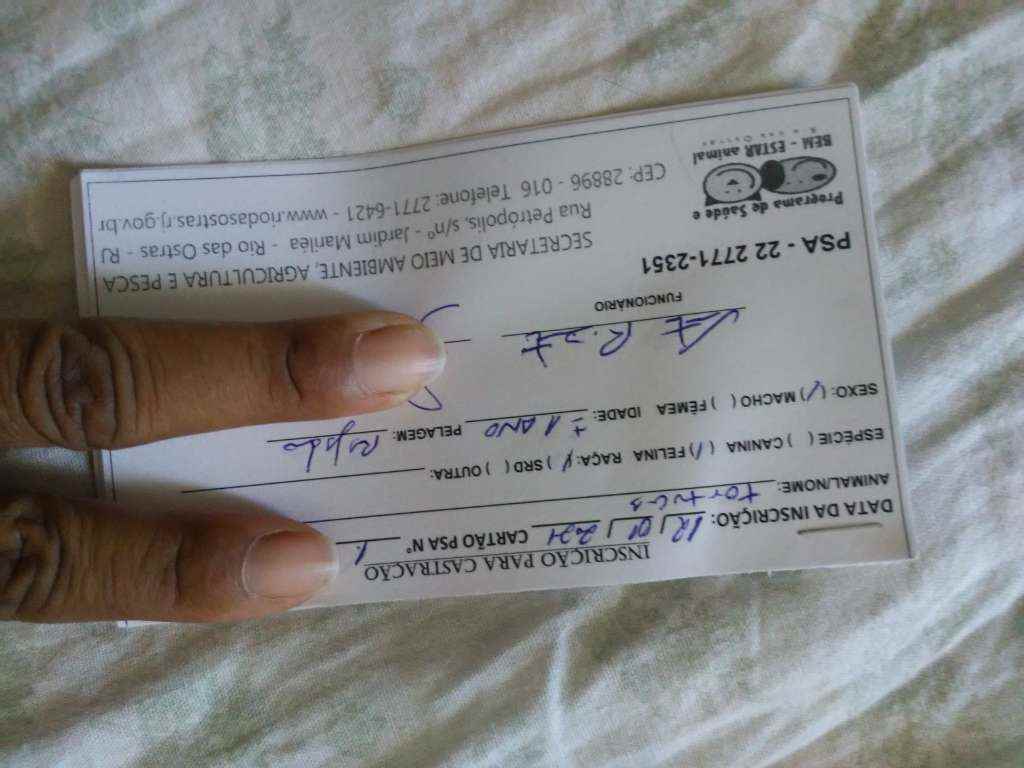 INSCRIÇÃO PARA CASTRAÇÃO
DATA DA INSCRIÇÃO: 12/01/2021 CARTÃO PSA Nº
ANIMAL/NOME:
ESPÉCIE ( ) CANINA (/) FELINA RAÇA: (/) SRD ( ) OUTRA:
SEXO: (/) MACHO ( ) FÊMEA IDADE: ± 1 ANO PELAGEM: Rajado
FUNCIONÁRIO
PSA - 22 2771-2351
SECRETARIA DE MEIO AMBIENTE, AGRICULTURA E PESCA
Rua Petrópolis, s/nº - Jardim Mariléa - Rio das Ostras - RJ
CEP: 28896 - 016 Telefone: 2771-6421 - www.riodasostras.rj.gov.br
Programa de Saúde e
BEM - ESTAR animal